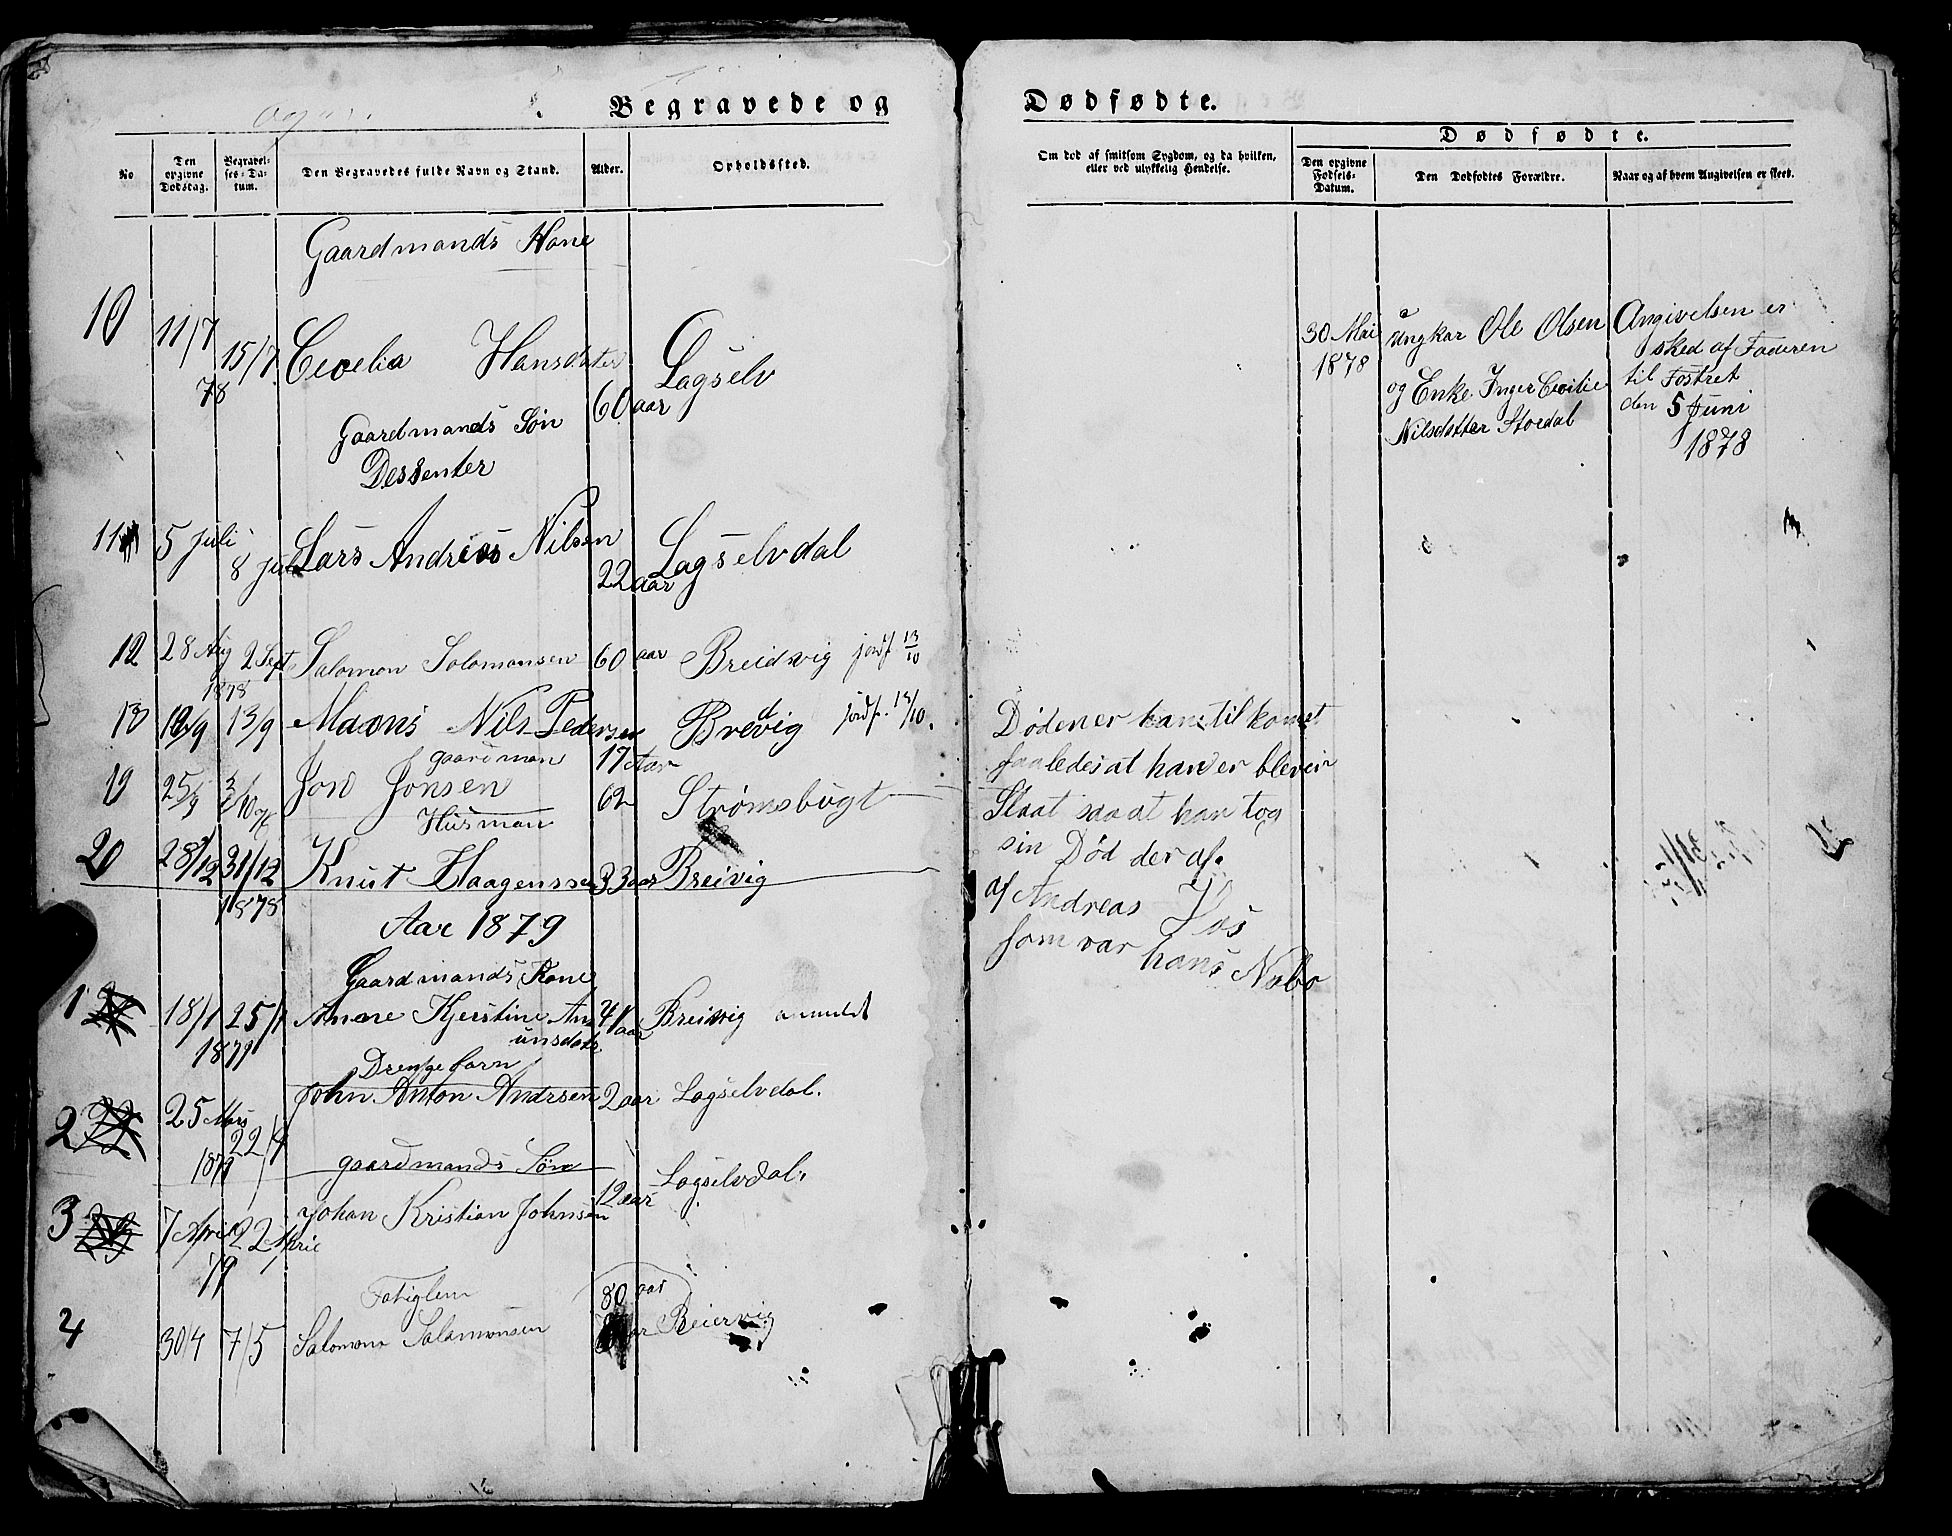 Begravede og
No
Den opgivne Dødsdag.
Begravelses-Datum.
Den Begravedes fulde Navn og Stand.
Alder.
Opholdssted.
Gaardmands Kone
10 11/7 78 15/7 Cecelia Hansdatter 60 aar Lagselv
Gaardmands Søn
Dessenter
11 5 Juli 8 Juli Lars Andreas Nilsen 22 aar Lagselvdal
12 28 Aug 2 Sept 1878 Salomon Solomonsen 60 aar Breidvig jordf 13/10
13/9 Maons Nils Pedersen 17 Aar Bredvig jordf. 13/10.
gaardman
19 25/9 Jon Jonsen 62 Strømsbugt
Husman
20 28/12 31/12 1878 Knut Haagenssen 33 aar Breivig
Aar 1879
Gaardmands Kone
1 18/1 1879 25/1 Anne Kjerstine Amunsdatr 41 aar Breivig anmeldt
Drengebarn
2 25 Mars 1879 22/4 John Anton Andrsen 2 aar Lagselvdal.
gaardmands Søn
3 7 April 79 22 April Johan Kristian Johnsen 12 aar Lagselvdal.
Fatiglem
4 30/4 7/5 Salomon Salamonsen 80 aar Beiervig
Dødfødte.
Om død af smitsom Sygdom, og da hvilken, eller ved ulykkelig Hendelse.
Dødfødte.
Den opgivne Fødsels-Datum.
Den Dødfødtes Forældre.
Naar og af hvem Angivelsen er skeet.
30 Mai 1878
ungkar Ole Olsen
og Enke Inger Cecilie
Nilsdatter Stordal
Angivelsen er
sked af Faderen
til Fostret
den 5 Juni
1878
Døden er ham til komet
saaledes at han er bleven
Slaat saa at han tog
sin Død der af.
af Andreas Hos
som var hans Nabo